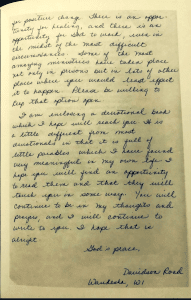 for positive change. There is an oppor-
tunity for healing, and there is an
opportunity for God to work, even in
the midst of the most difficult
circumstances. Some of the most
amazing ministries have taken place
not only in prisons but in lots of other
places where you would least expect
it to happen. Please be willing to
keep that option open.
I am enclosing a devotional book
which I hope will reach you. It is
a little different from most
devotionals in that it is full of
little parables which I have found
very meaningful in my own life. I
hope you will find an opportunity
to read them and that they will
touch you in some way. You will
continue to be in my thoughts and
prayers, and I will continue to
write to you. I hope that is
alright.
God's peace,
Davidson Road
Waukesha, WI